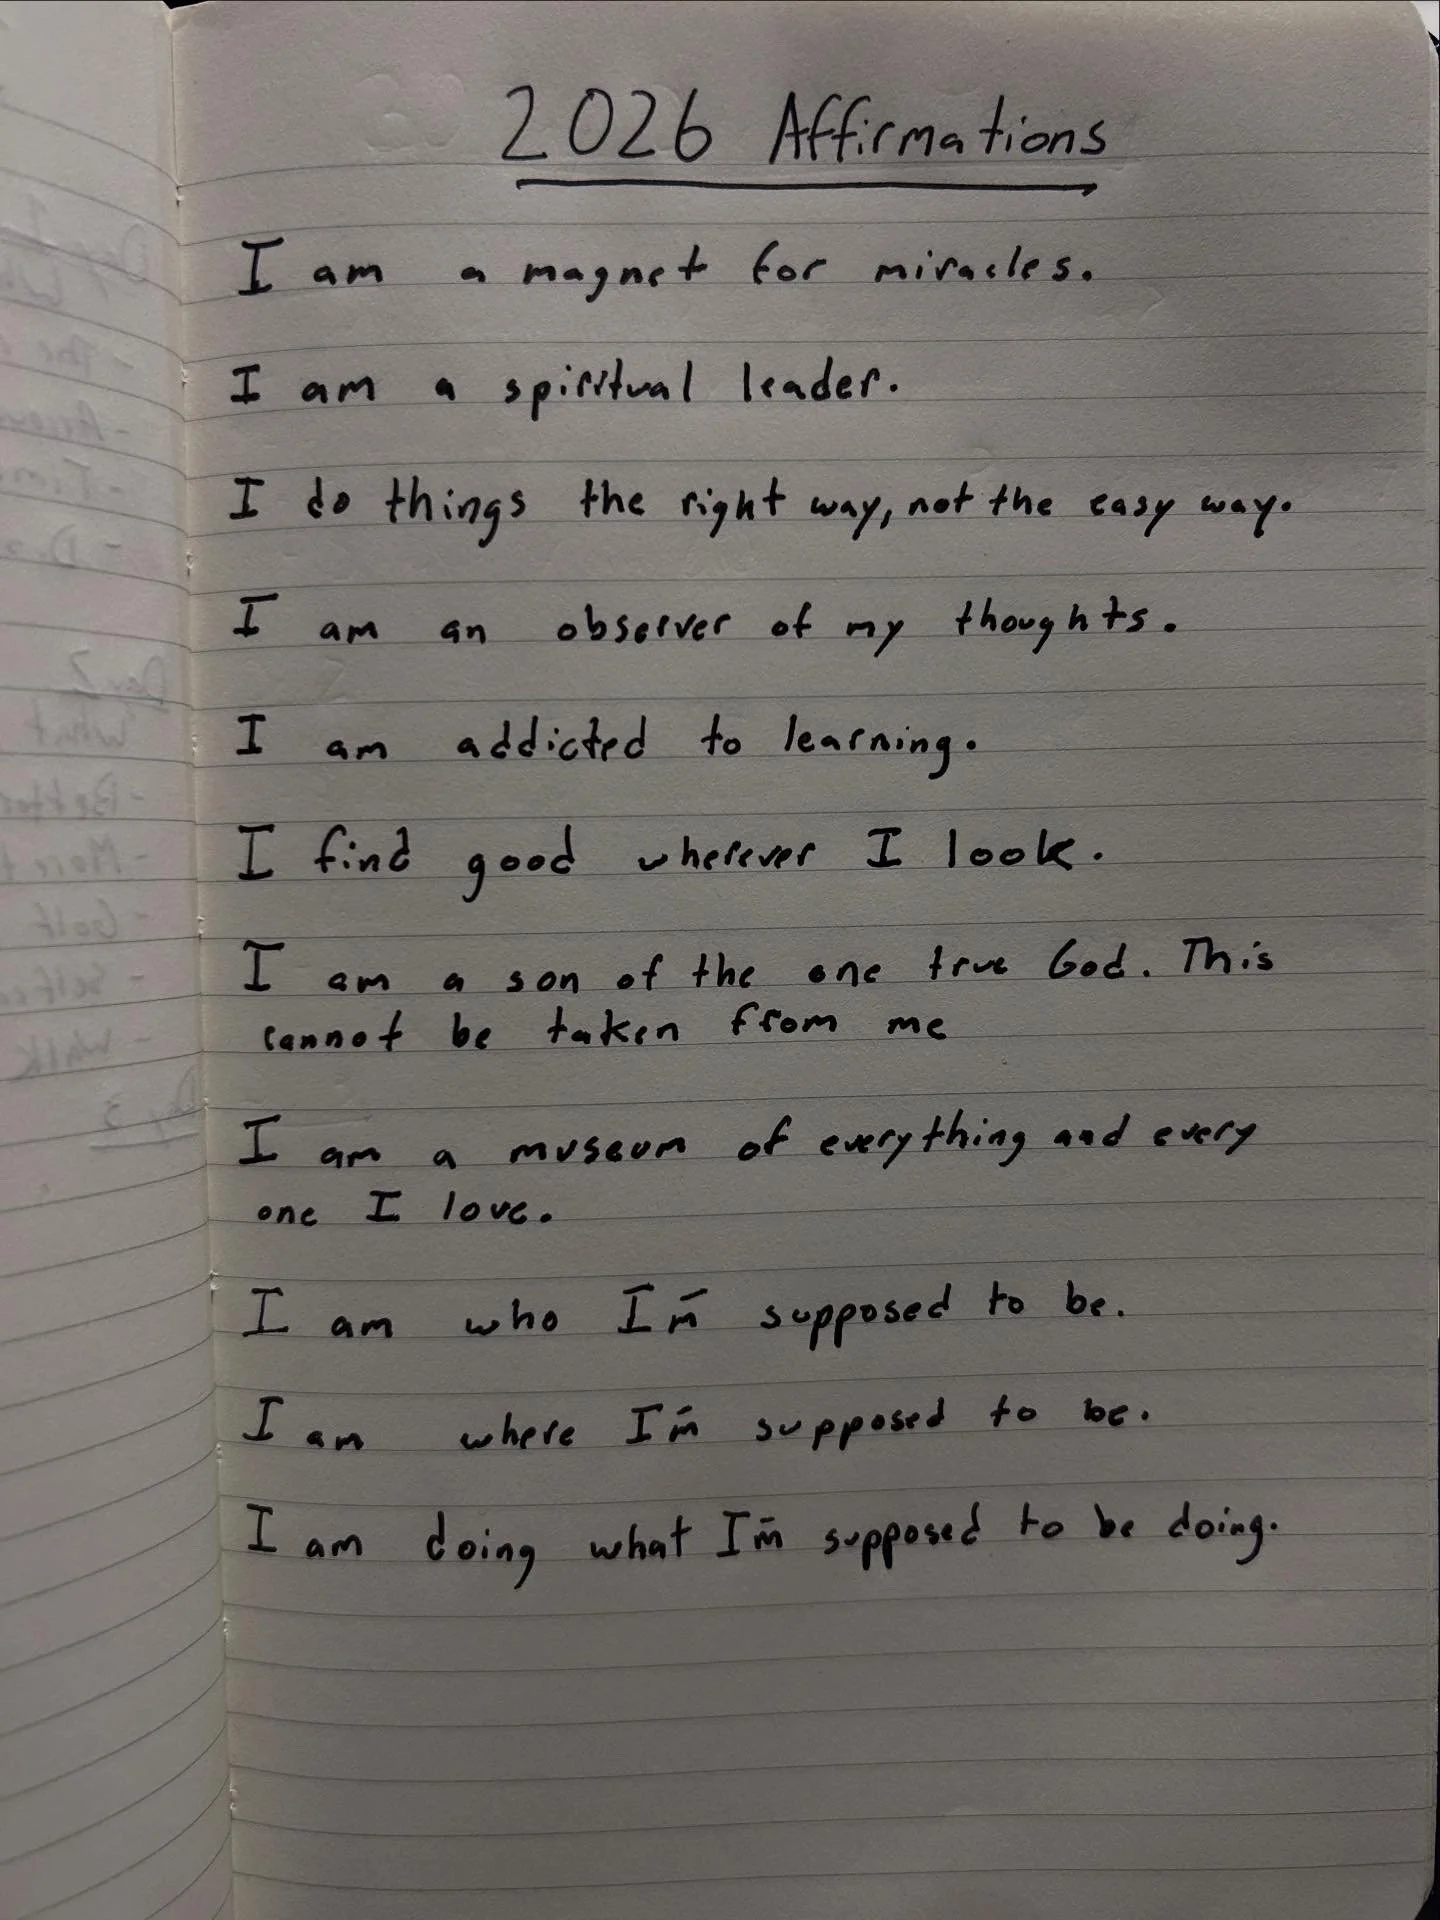 2026 Affirmations
I am a magnet for miracles.
I am a spiritual leader.
I do things the right way, not the easy way.
I am an observer of my thoughts.
I am addicted to learning.
I find good wherever I look.
I am a son of the one true God. This
cannot be taken from me
I am a museum of everything and every
one I love.
I am who I'm supposed to be.
I am where I'm supposed to be.
I am doing what I'm supposed to be doing.